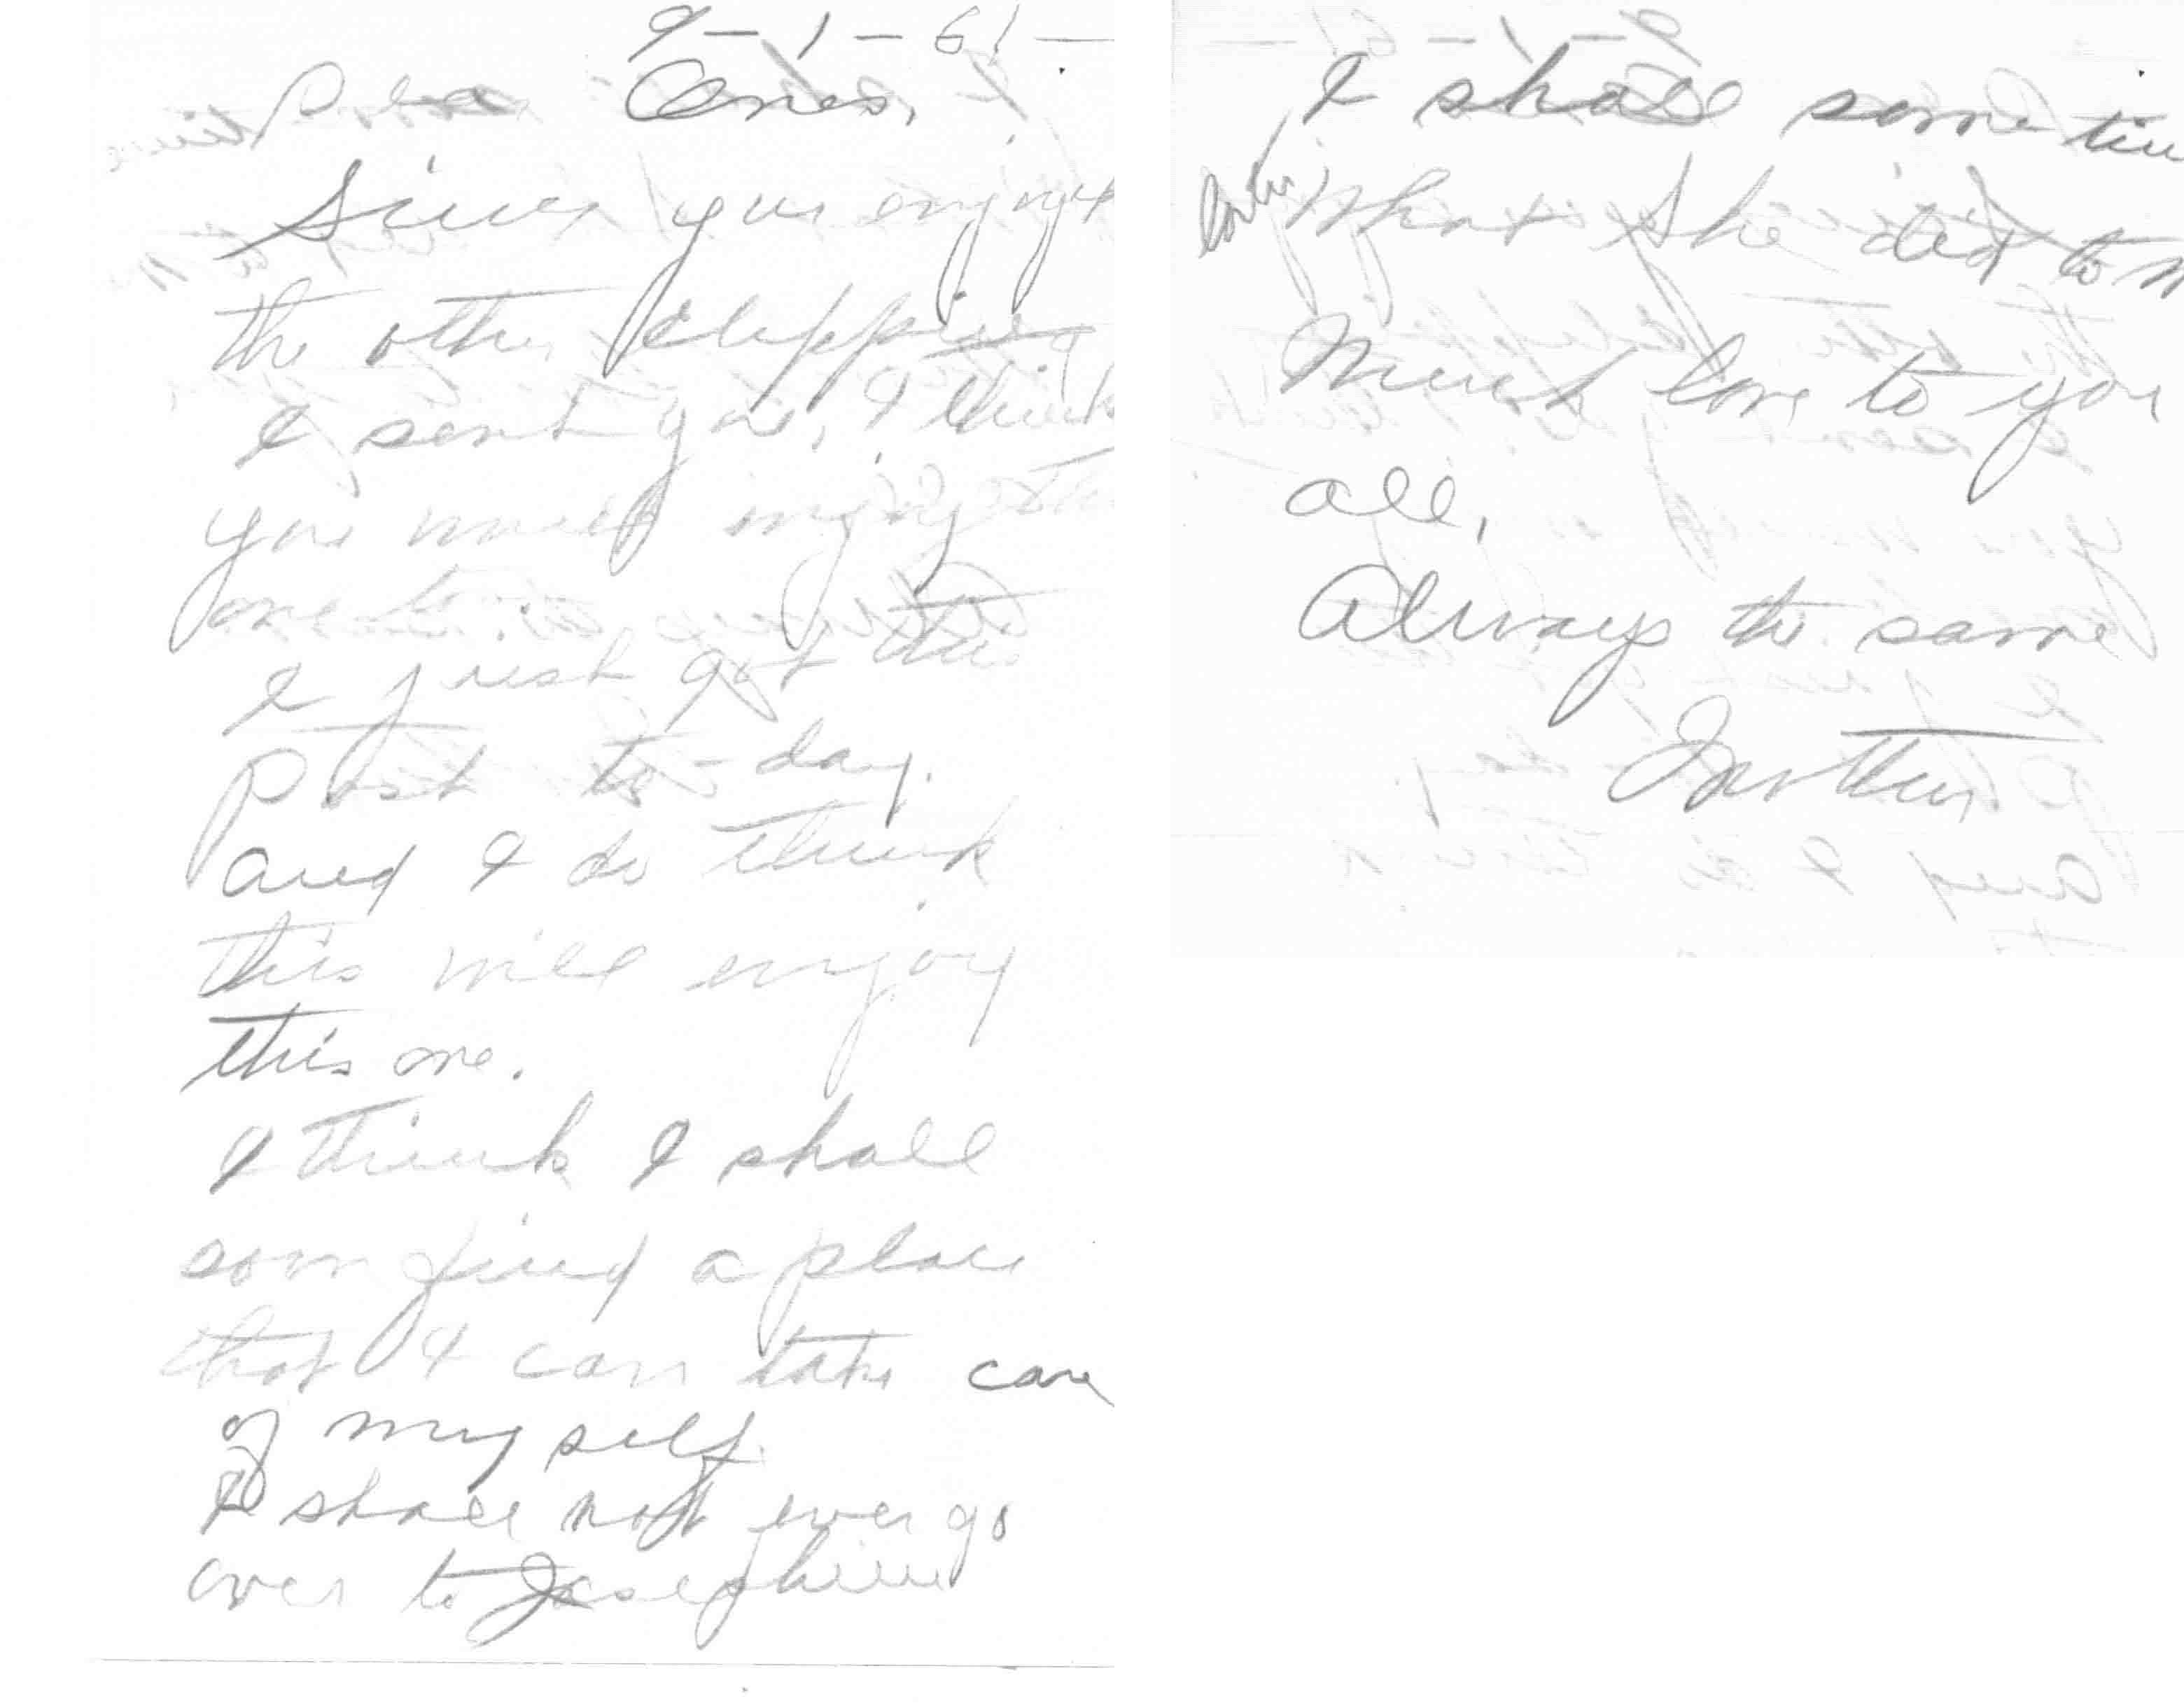 9-1-61
Dear Ones,
Since you enjoyed
the other clipping
I sent you, I think
you will enjoy this
one to.
I just got this
Post to-day.
and I do think
this will enjoy
this one.
I think I shall
soon find a place
that I can take care
of my self.
I shall not ever go
over to Josephine
I shall some tim
what she did to m
Much love to you
all,
Always the same